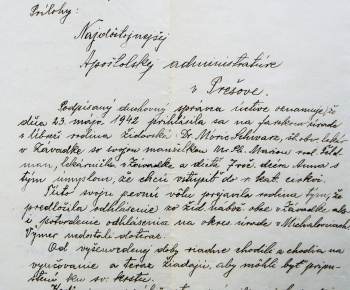 Prílohy:
Najdôstojnejšej
Apoštolskej administratúre
v Prešove.
Podpísaný duchovný správca úctive oznamuje, že
dňa 23. mája 1942 prihlásila sa na farskom úrade
rodina židovská Dr. Móric Schwarz, št. obv. lekár
v Závadke so svojou manželkou Mr. Ph. Máriou rod. Feld-
man, lekárnička v Závadke a dieťa 7 roč. dcéra Anna s
tým úmyslom, že chcú vstúpiť do r. kat. cirkvi.
Túto svoju pevnú vôľu prejavila rodina tým, že
predložila odhlásenie zo žid. nábož. obce v Závadke ako
i potvrdenie odhlásenia na okres. úrade v Michalovciach.
Výmer nedostali doteraz.
Od vyšeuvedenej doby riadne chodili a chodia na
vyučovanie a teraz žiadajú, aby mohli byť pripu-
stení ku sv. krstu.